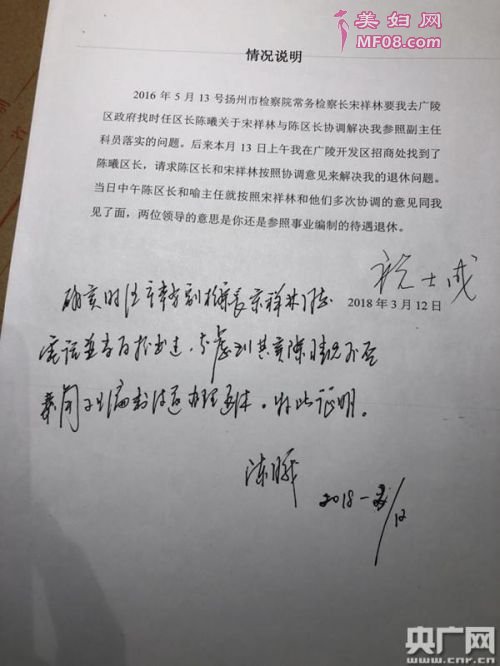 美妇网
MF08.com
情况说明
2016 年 5 月 13 号扬州市检察院常务检察长宋祥林要我去广陵
区政府找时任区长陈曦关于宋祥林与陈区长协调解决我参照副主任
科员落实的问题。后来本月 13 日上午我在广陵开发区招商处找到了
陈曦区长，请求陈区长和宋祥林按照协调意见来解决我的退休问题。
当日中午陈区长和喻主任就按照宋祥林和他们多次协调的意见同我
见了面，两位领导的意思是你还是参照事业编制的待遇退休。
2018 年 3 月 12 日
确实时任
办理退休。特此证明。
陈曦
2018
12
央广网
www.cnr.cn